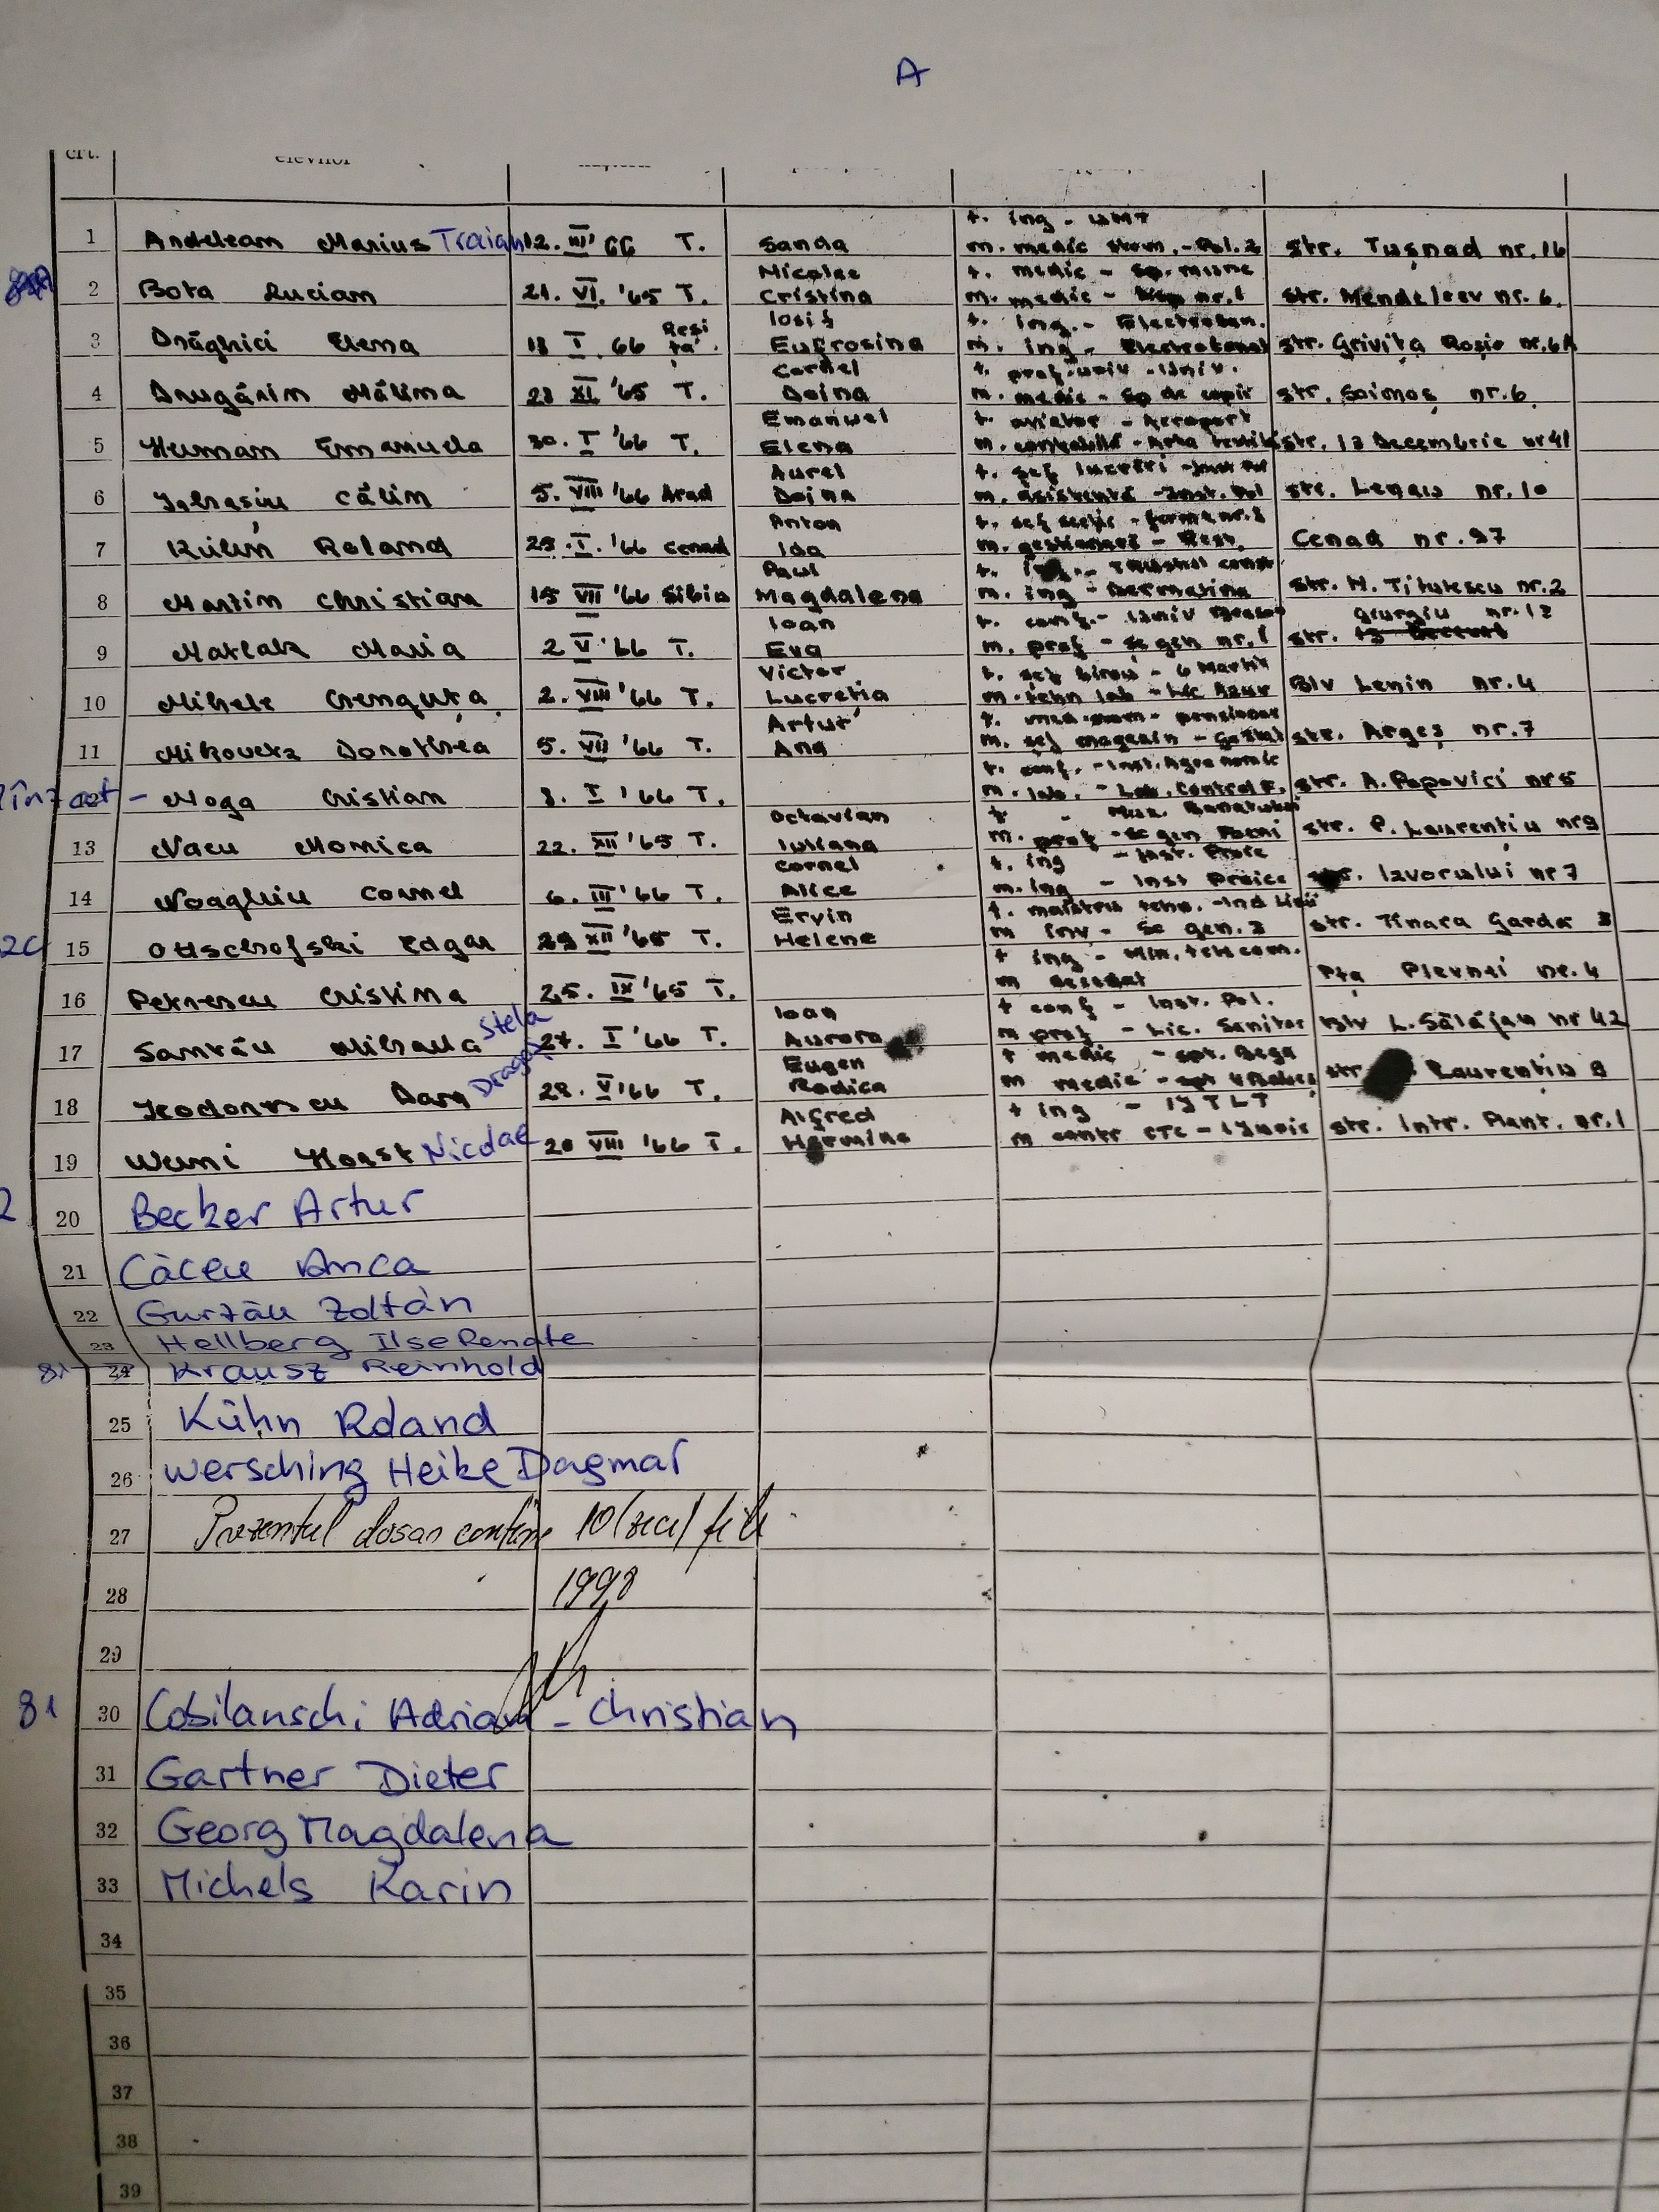 A
crt. elevilor
1 Andeleam Marius Traian 12. III '66 T. Sanda t. ing - UMT m. medic stom. - Pol. 2 str. Tușnad nr. 16
2 Bota Lucian 21. VI. '65 T. Nicolae Cristina t. medic - m. medic - nr. 1 str. Mendeleev nr. 6.
3 Drăghici Elena 18 I 66 Reși ța Iosif Eufrosina t. ing. - Electroban. m. ing - Electrobanat str. Grivița Roșie nr. 6A
4 Drugărin Mălina 23 XI '65 T. Cornel Doina t. prof. univ - Univ. m. medic - Sp de copii str. Soimoș nr. 6
5 Human Emanuela 30. I '66 T. Emanuel Elena t. aviator - Aeroport m. contabilă - Arta textilă str. 13 Decembrie nr 41
6 Ignasiu Călin 5. VIII '66 Arad Aurel Doina t. șef lucrări - m. asistentă - Inst. Pol str. Legaia nr. 10
7 Roland 29. I. '66 Cenad Anton Ida t. șef secție - ferma nr. 8 m. gestionară - Rest. Cenad nr. 97
8 Martin Christian 15 VII '66 Sibiu Paul Magdalena t. - Trustul const m. ing - Dermatina str. N. Titulescu nr. 2
9 Matlak Maria 2 V '66 T. Ioan Eva t. conf. - Univ m. prof - Sc gen nr. 1 str. Giurgiu nr. 12
10 Mihele Crenguța 2. VIII '66 T. Victor Lucreția t. șef birou - 6 Martie m. tehn lab - Lic Azur Blv Lenin nr. 4
11 Mikovecz Dorothea 5. VII '66 T. Artur Ana t. - pensionar m. șef magazin - str. Argeș nr. 7
12 - Moga Cristian 8. I '66 T. t. conf. - Inst. Agronomic m. lab. - Lab. Control F. str. A. Popovici nr 5
13 Nacu Monica 22. XII '65 T. Octavian Iuliana t - Muz. Banatului m. prof - Sc gen str. P. Laurențiu nr 9
14 Noaghiu Cornel 6. III '66 T. Cornel Alice t. ing - Inst. Proie m. ing - Inst Proiec str. Izvorului nr 7
2C 15 Ottschofski Edgar 29 XII '65 T. Ervin Helene t. maistru tehn. - Ind m inv - Sc gen. 3 str. Tinara Garda 3
16 Petrescu Cristina 25. IX '65 T. t ing - Min. telecom. m Pța Plevnei nr. 4
17 Santău Mihaela Stela 27. I '66 T. Ioan Aurora t conf - Inst. Pol. m prof - Lic. Sanitar Blv L. Sălăjan nr 42
18 Teodorescu Dan Dragoș 28. V '66 T. Eugen Rodica t medic - spt. Bega m medic - str Laurențiu 8
19 Werni Horst Nicolae 20 VIII '66 T. Alfred Hermine t ing - IJTLT m contr CTC - str. Intr. Plant. nr. 1
2 20 Becker Artur
21 Căceu Anca
22 Gurzău Zoltán
23 Hellberg Ilse Renate
81 24 Krausz Reinhold
25 Kühn Roland
26 Wersching Heike Dagmar
27 Prezentul dosar conține 10 (zece) file
28 1998
29
81 30 Cobilanschi Adrian - Christian
31 Gartner Dieter
32 Georg Magdalena
33 Michels Karin
34
35
36
37
38
39